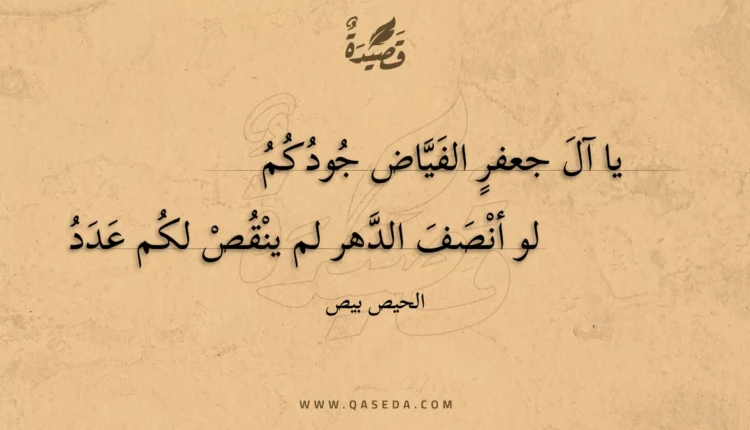 قَصِيدَةٌ
يا آلَ جعفرٍ الفَيَّاض جُودُكُمُ
لو أنْصَفَ الدَّهر لم ينْقُصْ لكُم عَدَدُ
الحيص بيص
WWW.QASEDA.COM